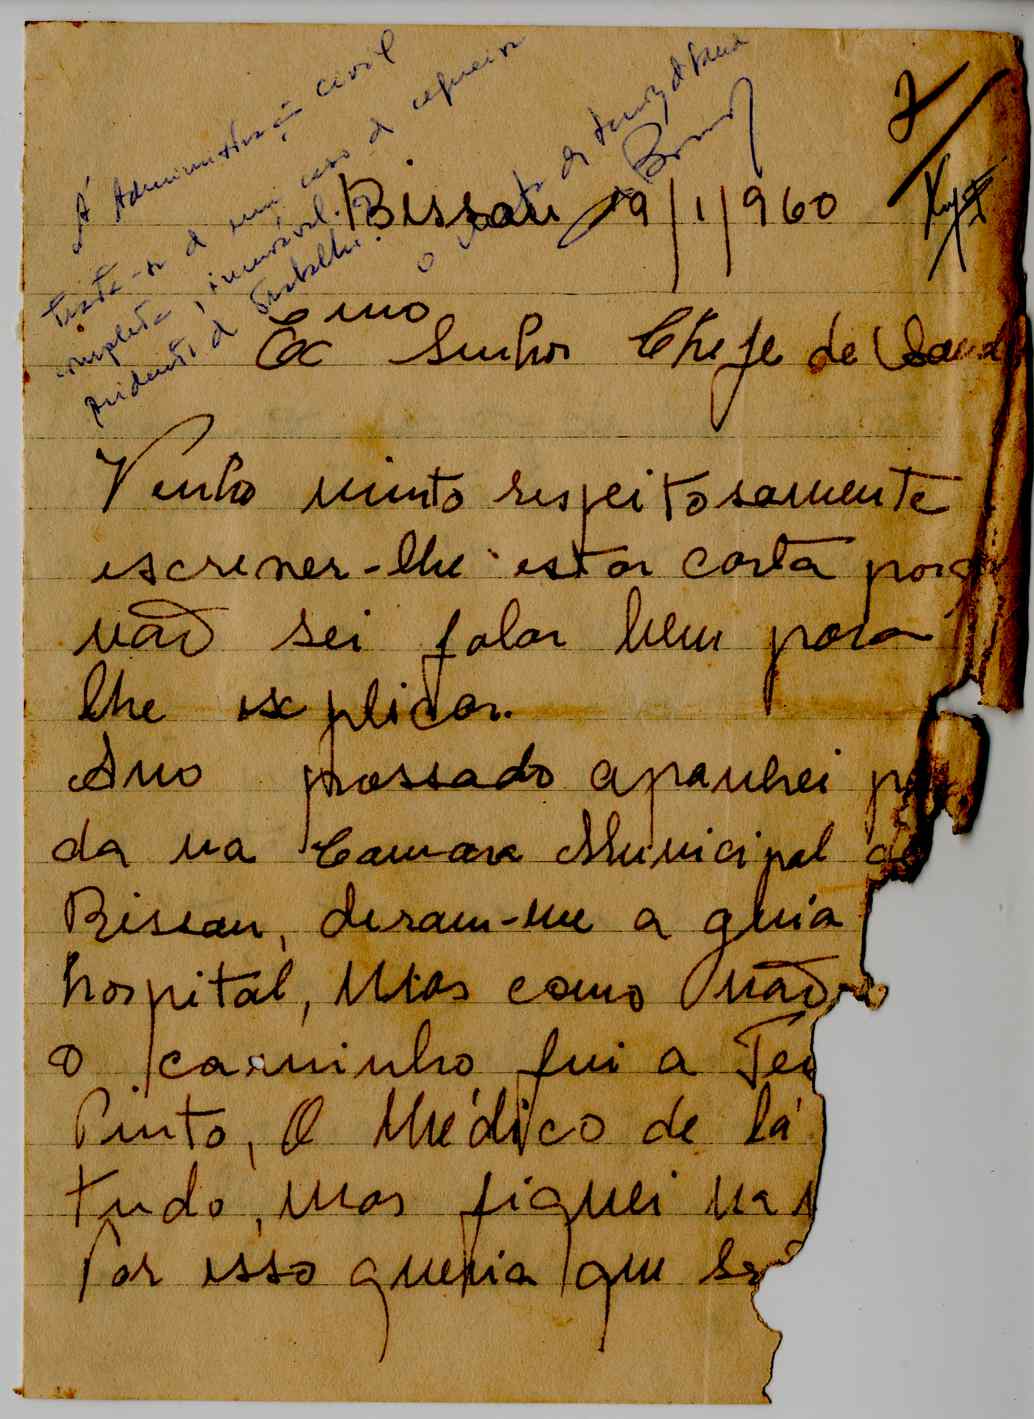 À Administração civil
Trata-se de um caso de cegueira
completa, incurável.
acidente de trabalho.
7
Bissau 19/1/960
Exmo Senhor Chefe de Saud
Venho muito respeitosamente
escrever-lhe esta carta porq
não sei falar bem para
lhe explicar.
Ano passado apanhei pa
da na Camara Municipal de
Bissau, deram-me a guia
hospital, mas como não
o caminho fui a Tei
Pinto, O Médico de lá
tudo, mas fiquei na
Por isso queria que Se